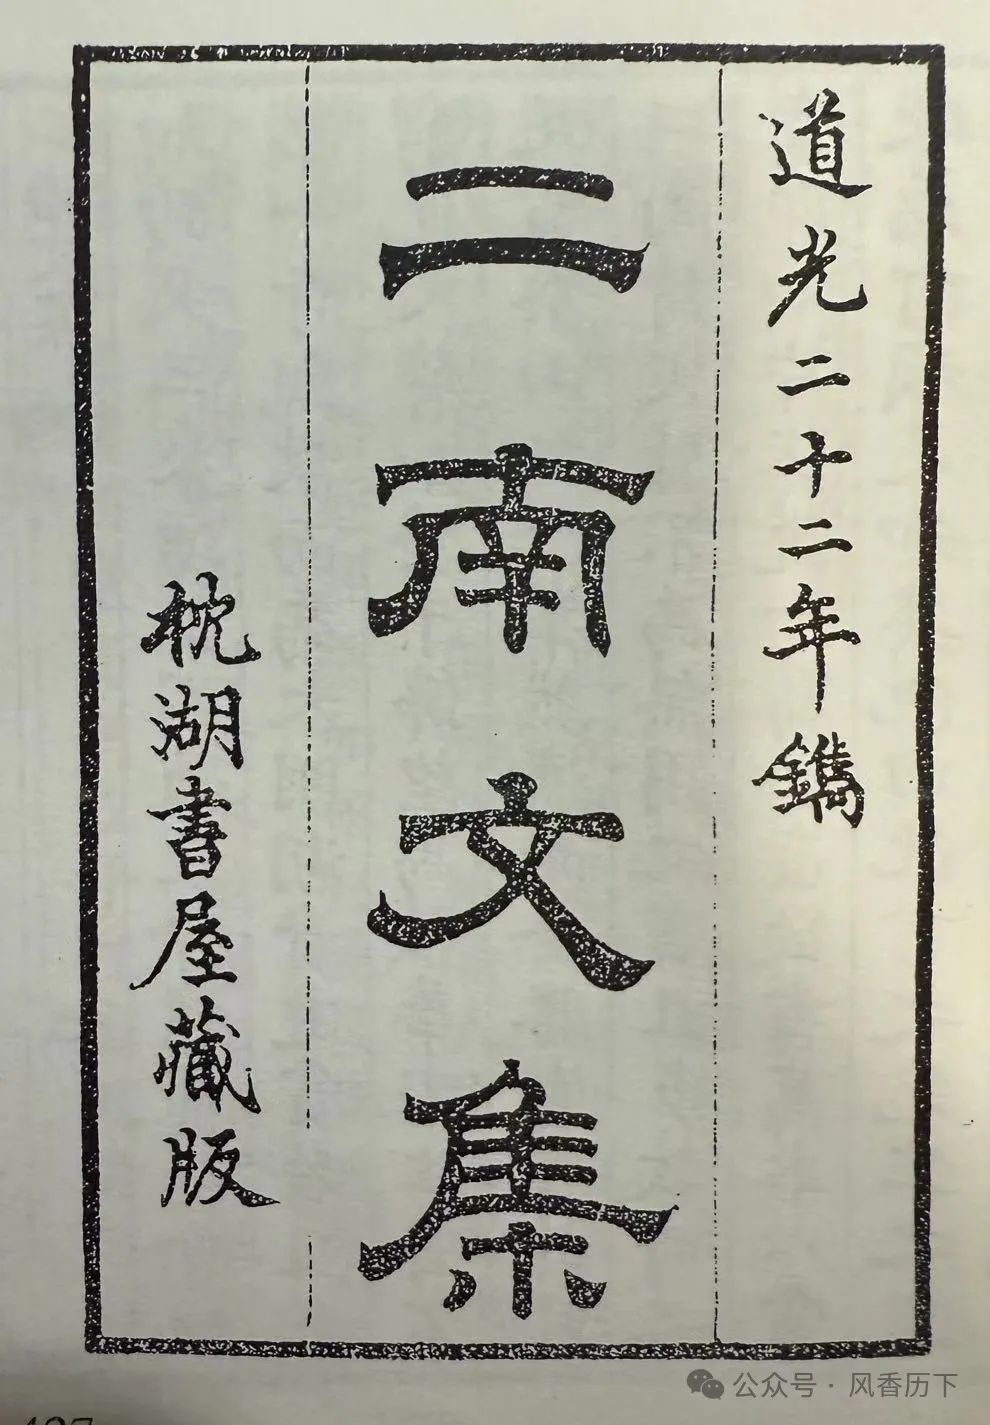 道光二十二年鐫
二南文集
枕湖書屋藏版
公众号·风香历下